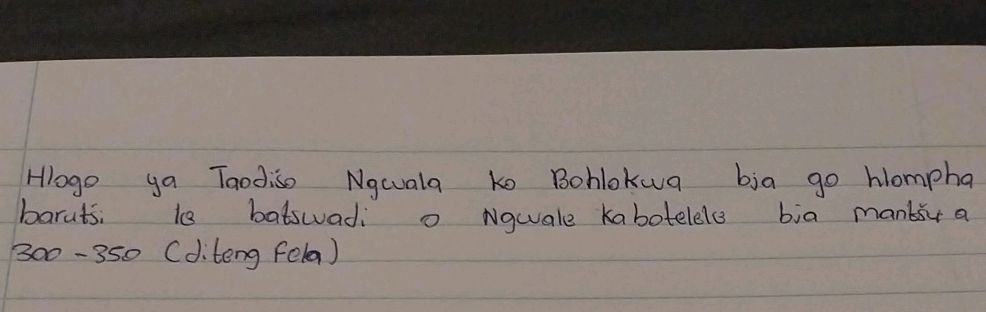 Hlogo ya Taodiso Ngwala ko Bohlokwa bja go hlompha
barutsi le batswadi o Ngwale ka botelele bja mantšu a
300 - 350 (diteng fela)